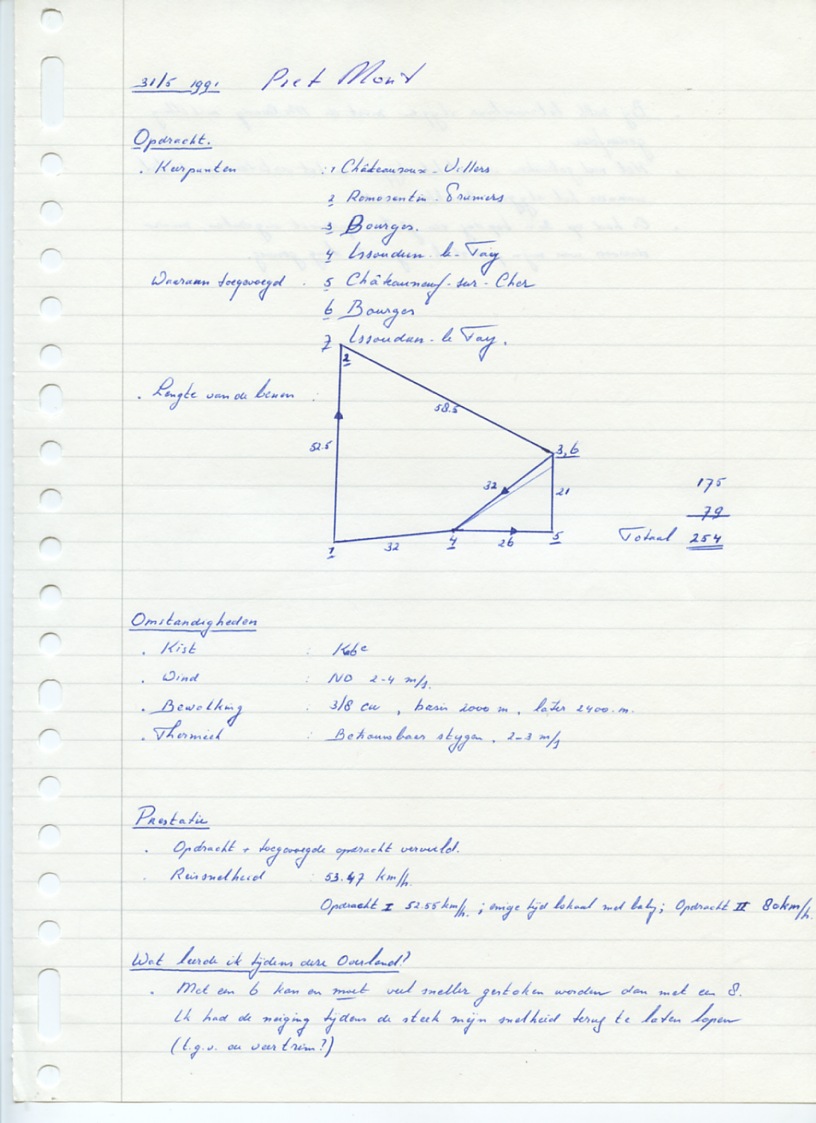 31/5 1991 Piet Mont
Opdracht.
. Keerpunten : 1 Châteauroux - Villers
2 Romorantin - Pruniers
3 Bourges.
4 Issoudun - le - Fay
Waaraan toegevoegd . 5 Châteauneuf - sur - Cher
6 Bourges
7 Issoudun - le Fay .
2
. Lengte van de benen :
58.5
52.5
3,6
32
21
175
79
Totaal 254
1
32
4
26
5
Omstandigheden
. Kist : K6e
. Wind : NO 2-4 m/s.
. Bewolking : 3/8 cu , basis 2000 m , later 2400 m.
. Thermiek : Betrouwbaar stygen . 2-3 m/s
Prestatie
. Opdracht + toegevoegde opdracht vervuld.
. Reissnelheid : 53.47 km/h.
Opdracht I 52.55 km/h. ; enige tijd lokaal met baby; Opdracht II 80 km/h.
Wat leerde ik tijdens deze Overland?
. Met een 6 kan en moet veel sneller gestoken worden dan met een 8.
Ik had de neiging tijdens de steek mijn snelheid terug te laten lopen
(t.g.v. de veertrim?)